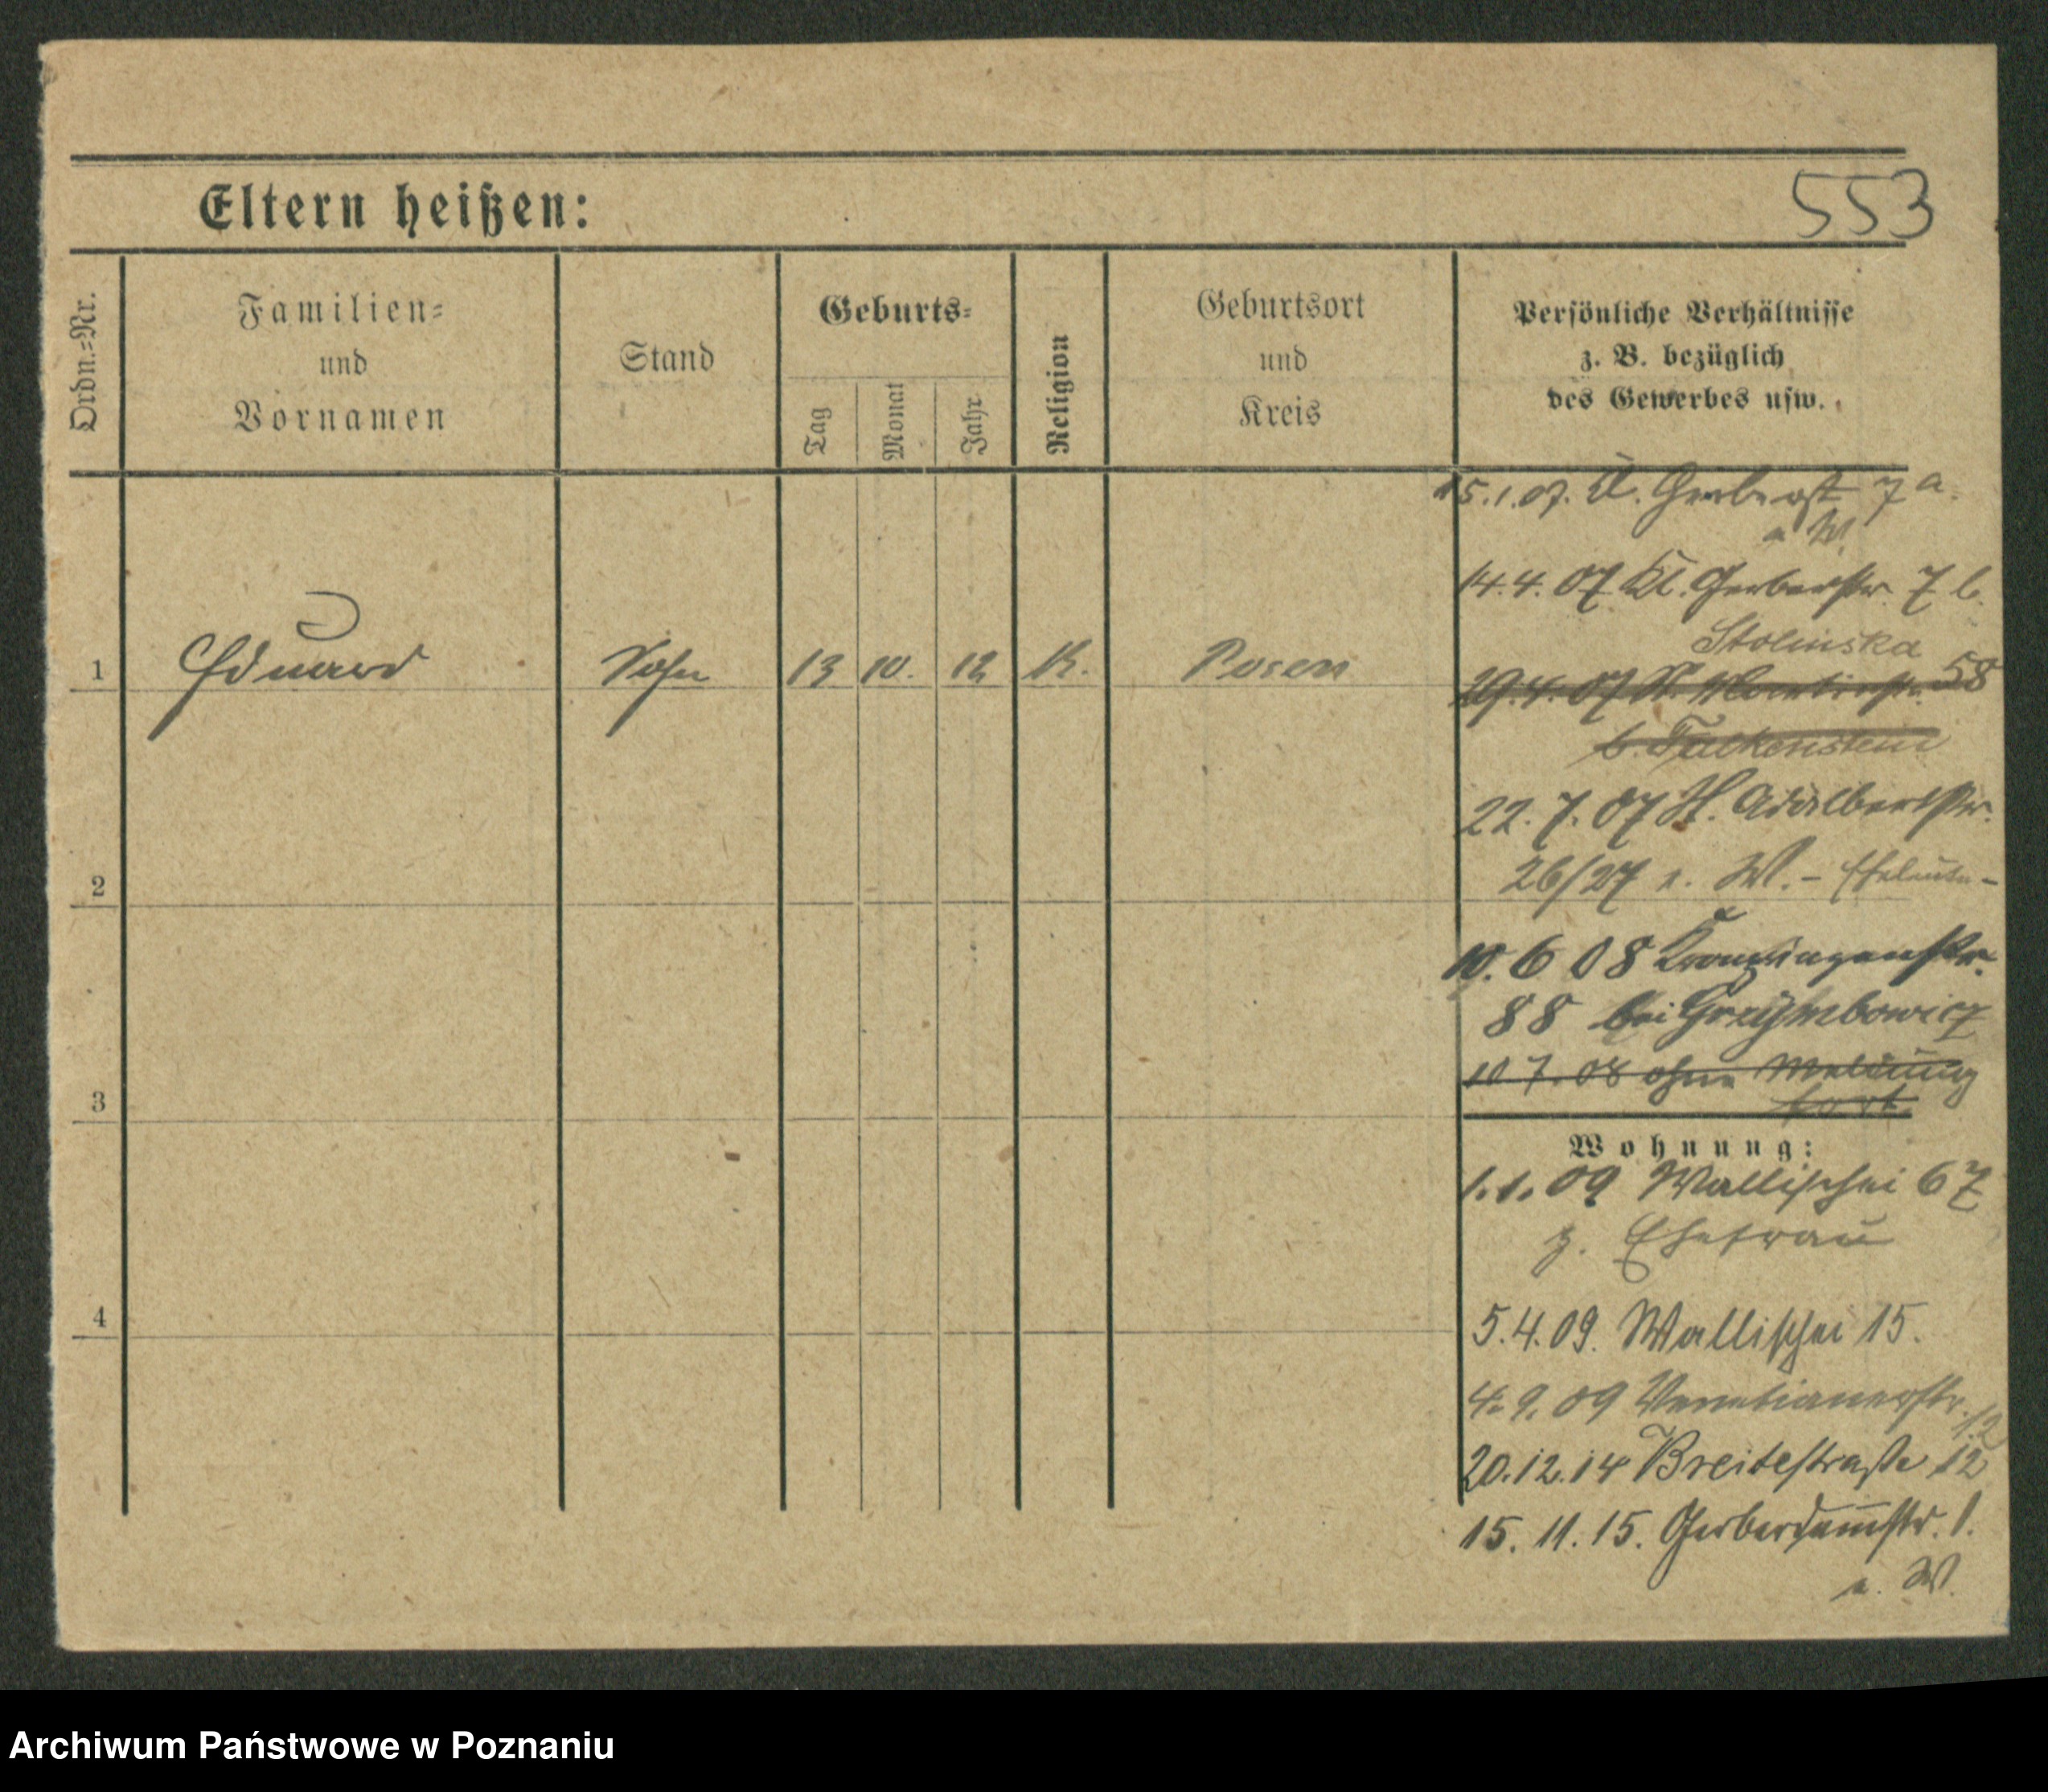 Eltern heißen:
553
Ordn.-Nr.
Familien-
und
Vornamen
Stand
Geburts-
Tag
Monat
Jahr
Religion
Geburtsort
und
Kreis
Persönliche Verhältnisse
z. B. bezüglich
des Gewerbes usw.
15.1.07. Kl. Gerberst 7 a.
a. W.
14.4.07 Kl. Gerberstr. 7 b.
Stolinska
1 Eduard Sohn 13 10. 12 K. Posen
29.4.07 St. Martinstr. 58
b. Falkenstein
22.7.07 St. Adalbertstr.
26/27 a. W. - Eheleute -
2
10.6 08 Kronprinzenstr.
88 bei Grzymbowicz
10 7. 08 ohne Meldung
fort
3
Wohnung:
1.1.09 Wallischei 67
z. Ehefrau
5.4.09. Wallischei 15.
4
4.9.09 Venetianerstr. 12
20.12.14 Breitestraße 12
15.11.15. Gerberdammstr. 1.
a. W.
Archiwum Państwowe w Poznaniu